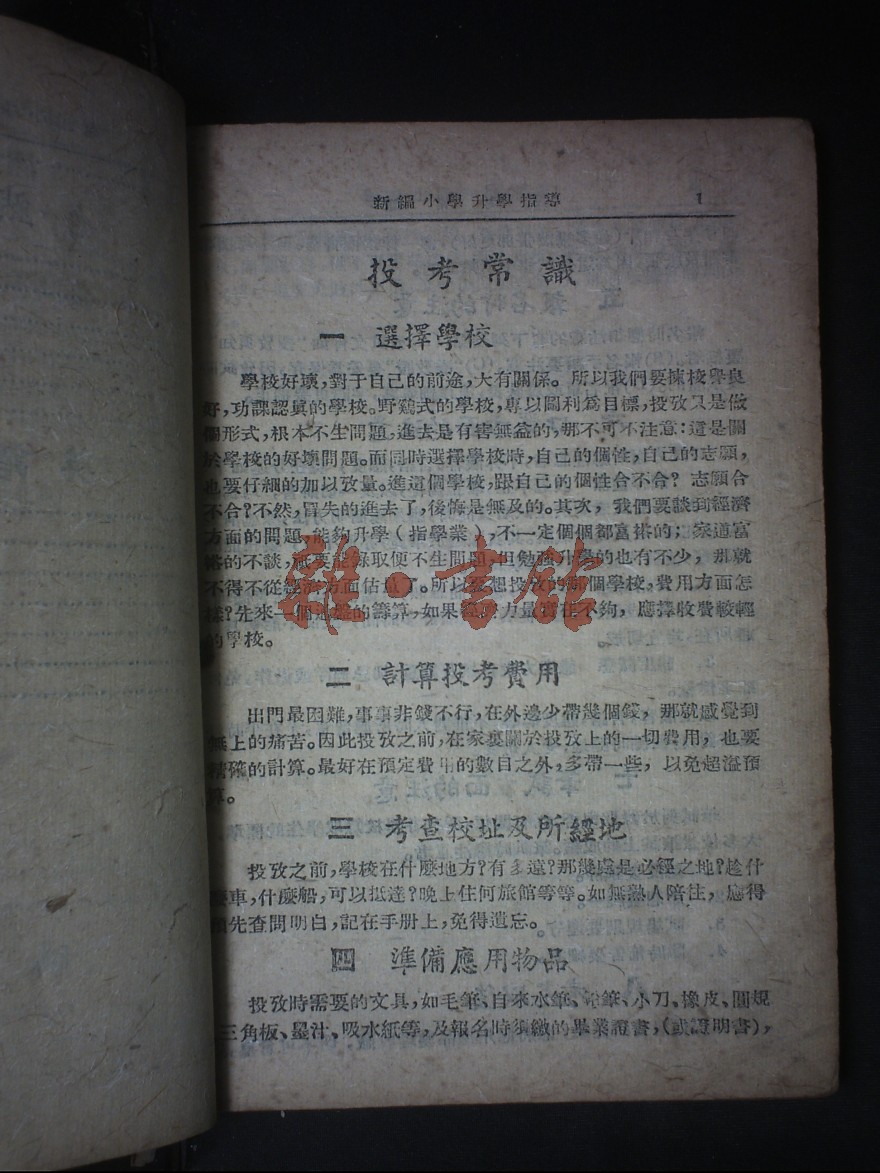 新編小學升學指導 1
投考常識
一 選擇學校
學校好壞,對于自己的前途,大有關係。所以我們要揀校譽良
好,功課認眞的學校。野鷄式的學校,專以圖利爲目標,投攷只是做
個形式,根本不生問題,進去是有害無益的,那不可不注意:這是關
於學校的好壞問題。而同時選擇學校時,自己的個性,自己的志願,
也要仔細的加以攷量。進這個學校,跟自己的個性合不合?志願合
不合?不然,冒失的進去了,後悔是無及的。其次,我們要談到經濟
方面的問題,能夠升學(指學業),不一定個個都富裕的;家道富
裕的不談,祗要能錄取便不生問題,但勉強升學的也有不少,那就
不得不從經濟方面估量了。所以要想投攷的那個學校,費用方面怎
樣?先來一個通盤的籌算,如果經濟力量實在不夠,應擇收費較輕
的學校。
二 計算投考費用
出門最困難,事事非錢不行,在外邊少帶幾個錢,那就感覺到
無上的痛苦。因此投攷之前,在家裏關於投攷上的一切費用,也要
精確的計算。最好在預定費用的數目之外,多帶一些,以免超溢預
算。
三 考查校址及所經地
投攷之前,學校在什麼地方?有多遠?那幾處是必經之地?趁什
麼車,什麼船,可以抵達?晚上住何旅館等等。如無熟人陪往,應得
預先查問明白,記在手册上,免得遺忘。
四 準備應用物品
投攷時需要的文具,如毛筆、自來水筆、鉛筆、小刀、橡皮、圓規
三角板、墨汁、吸水紙等,及報名時須繳的畢業證書,(或證明書),
雜·書館